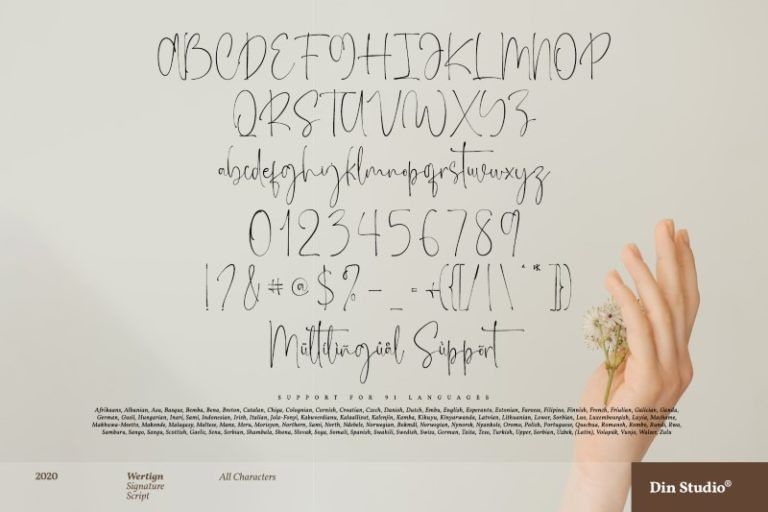 ABCDEFGHIJKLMNOP
QRSTUVWXYZ
abcdefghijklmnopqrstuvwxyz
0123456789
!?&#@$%-_=+({[/|\^"*]})
Mültilïngûâl Sùppört
SUPPORT FOR 91 LANGUAGES
Afrikaans, Albanian, Asu, Basque, Bemba, Bena, Breton, Catalan, Chiga, Colognian, Cornish, Croatian, Czech, Danish, Dutch, Embu, English, Esperanto, Estonian, Faroese, Filipino, Finnish, French, Friulian, Galician, Ganda,
German, Gusii, Hungarian, Inari, Sami, Indonesian, Irish, Italian, Jola-Fonyi, Kabuverdianu, Kalaallisut, Kalenjin, Kamba, Kikuyu, Kinyarwanda, Latvian, Lithuanian, Lower, Sorbian, Luo, Luxembourgish, Luyia, Machame,
Makhuwa-Meetto, Makonde, Malagasy, Maltese, Manx, Meru, Morisyen, Northern, Sami, North, Ndebele, Norwegian, Bokmål, Norwegian, Nynorsk, Nyankole, Oromo, Polish, Portuguese, Quechua, Romansh, Rombo, Rundi, Rwa,
Samburu, Sango, Sangu, Scottish, Gaelic, Sena, Serbian, Shambala, Shona, Slovak, Soga, Somali, Spanish, Swahili, Swedish, Swiss, German, Taita, Teso, Turkish, Upper, Sorbian, Uzbek, (Latin), Volapük, Vunjo, Walser, Zulu
2020
Wertign
Signature
Script
All Characters
Din Studio®